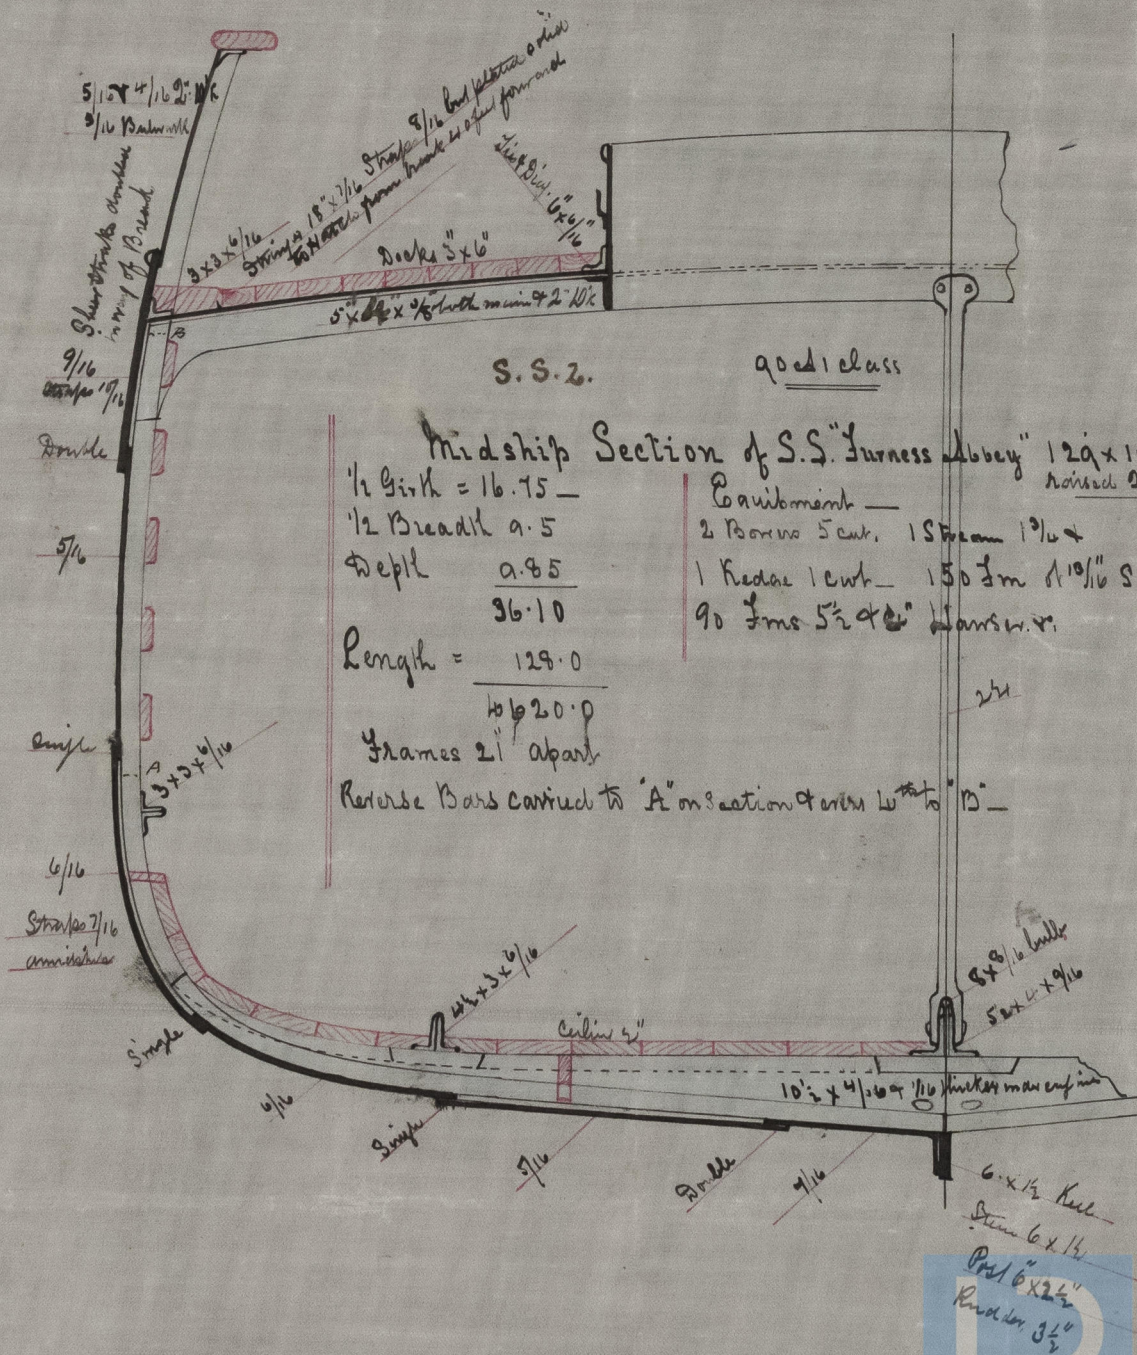 5/16 & 4/16 2nd Dk
3/16 Bulwark
Sheerstrake doubled
in way of Break
3 x 3 x 6/16
Stringer 18" x 7/16 Straps 8/16 but plated solid
to Hatch from break forward
6" x 6/16"
Decks 3" x 6"
both main & 2nd Dk
B
9/16
Straps 10/16
Double
5/16
Single
A
3 x 3 x 6/16
6/16
Straps 7/16
amidships
Single
6/16
Single
5/16
Double
9/16
S.S.2.
90 A1 class
Midship Section of S.S. "Furness Abbey" 129 x 1
raised 2
1/2 Girth = 16.75 —
1/2 Breadth 9.5
Depth 9.85
36.10
Length = 128.0
4620.0
Frames 21" apart
Reverse Bars carried to "A" on Section & every 4th to "B" —
Equipment —
2 Bowers 5 cwt. 1 Stream 1 3/4 &
1 Kedge 1 cwt — 150 Fm of 13/16 S
90 Fms 5 1/2 & 4" Hawser &.
2 1/4
4 1/2 x 3 x 6/16
Ceiling 2"
8 x 8/16 bulb
5 1/2 x 4 x 9/16
10 1/2 x 4/16 & 1/16 thicker under engines
6 x 1 1/2 Keel
Stem 6 x 1 1/2
Post 6" x 2 1/2"
Rudder 3 1/2"